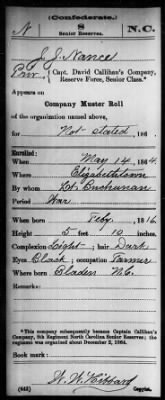 (Confederate.)
N 8 N.C.
Senior Reserves.
J. J. Nance
Priv., Capt. David Callihan's Company,
Reserve Force, Senior Class.*
Appears on
Company Muster Roll
of the organization named above,
for Not stated, 186
Enrolled:
When May 14, 1864
Where Elizabethtown
By whom Lt. Buchanan
Period War
When born Feby., 1816
Height 5 feet 10 inches
Complexion Light; hair Dark
Eyes Black; occupation Farmer
Where born Bladen N.C.
Remarks:
*This company subsequently became Captain Callihan's
Company, 8th Regiment North Carolina Senior Reserves; the
regiment was organized about December 2, 1864.
Book mark:
(642) W. W. Hibbard